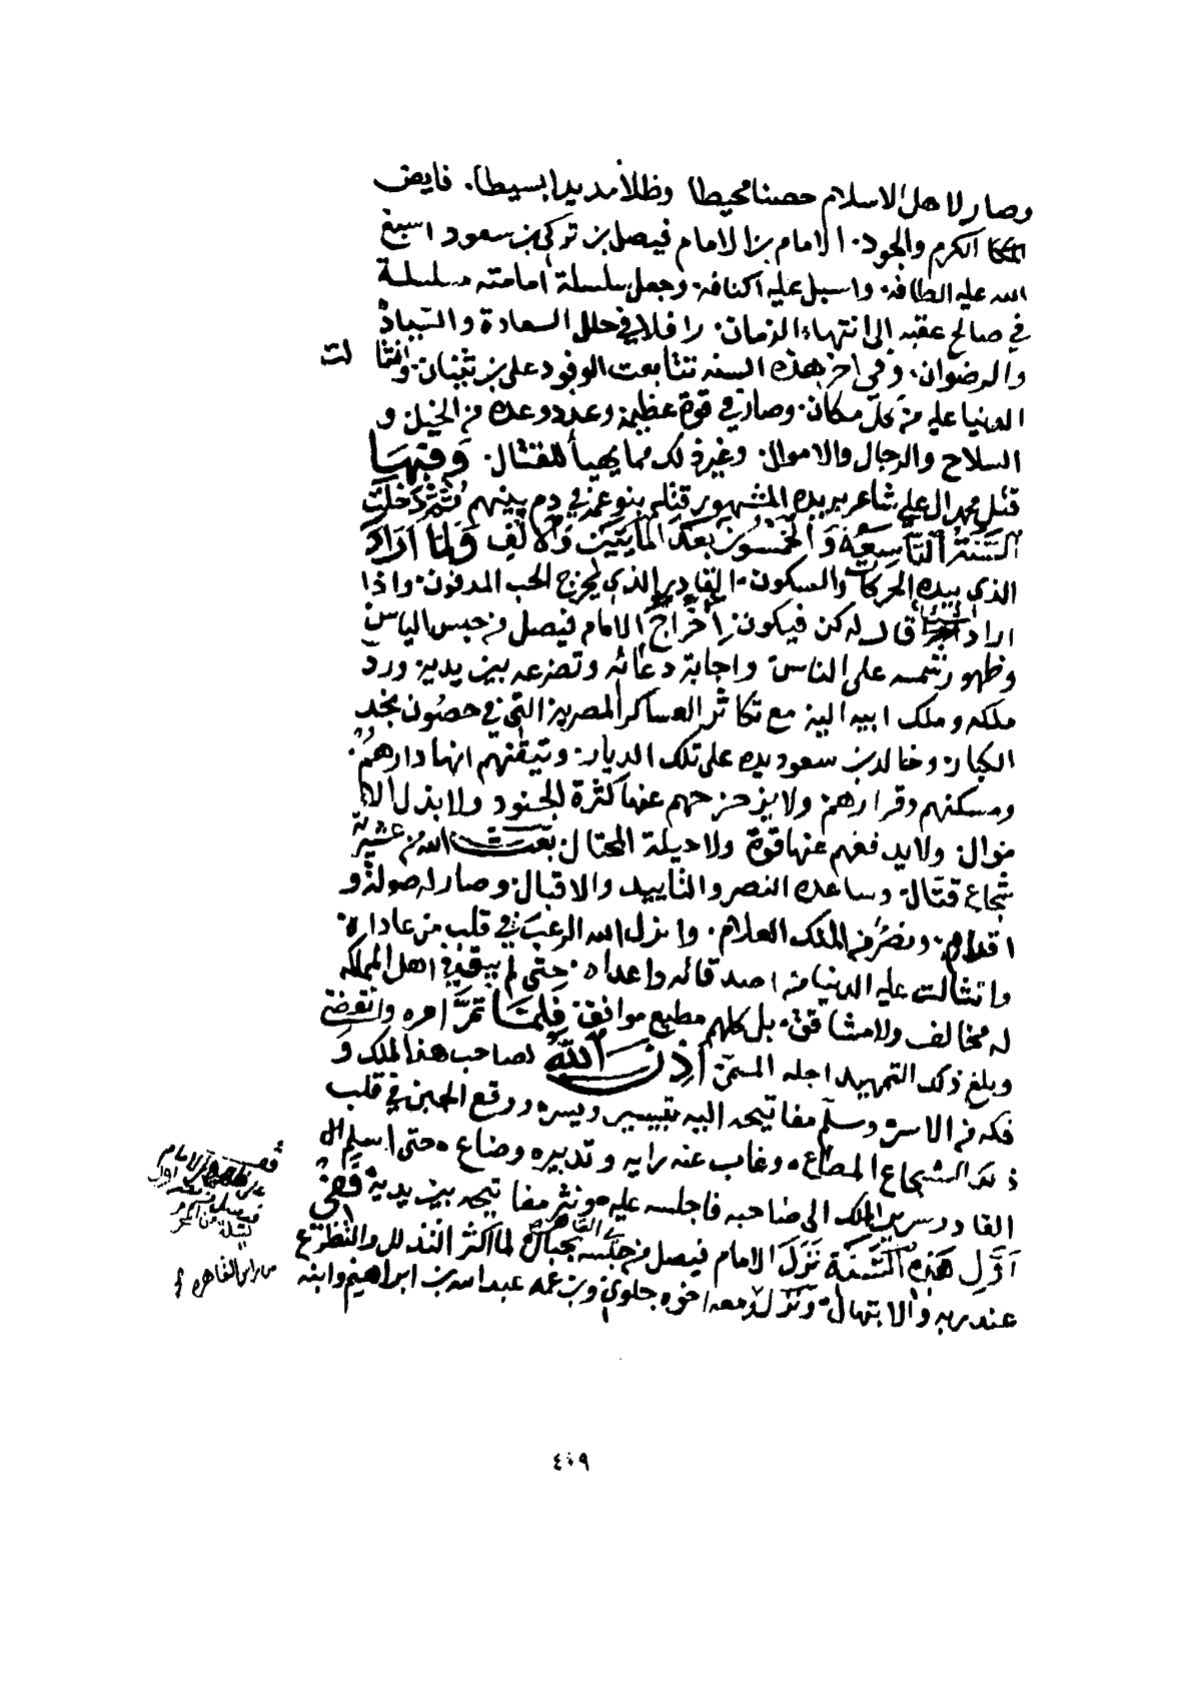 وصار لاهل الاسلام حصنا محيطا وظلا مديدا بسيطا. فايض
الكرم والجود. الامام بن الامام فيصل بن تركي بن سعود اسبغ
الله عليه الطافه. واسبل عليه اكنافه. وجعل سلسلة امامته مسلسلة
في صالح عقبه الى انتهاء الزمان. رافلا في حلل السعادة والسيادة
والرضوان. وفي اخر هذه السنه تتابعت الوفود على بن ثنيان. وانثالت
الدنيا عليه من كل مكان. وصار في قوة عظيمة وعدد وعده من الخيل و
السلاح والرجال والاموال. وغير ذلك مما يهيأ للقتال. وفيها
قتل محمد ال علي شاعر بريده المشهور قتله بنو عمه في دم بينهم ثم دخلت
السنة التاسعة والخمسون بعد المايتين والالف ولما اراد
الذي بيده الحركات والسكون. القادر الذي يخرج الحب المدفون. واذا
اراد قال له كن فيكون. اخراج الامام فيصل من حبس الياس
وظهور شمسه على الناس. واجابة دعائه وتضرعه بين يديه ورد
ملكه وملك ابيه اليه مع تكاثر العساكر المصرية التي في حصون نجد
الكبار. وخالد بن سعود بيده على تلك الديار. وتيقنهم انها دارهم.
ومسكنهم وقرارهم. ولا يزحزحهم عنها كثرة الجنود ولا بذل الا
موال. ولا يدفعهم عنها قوة ولا حيلة المحتال بعث الله من عشيرته
شجاع قتال. وساعده النصر والتاييد والاقبال. وصار له صولة و
اقدام. ونصره الملك العلام. وانزل الله الرعب في قلب من عاداه.
وانثالت عليه الدنيا من اصدقائه واعداه. حتى لم يبق في اهل المملكه
له مخالف ولا مشاقق. بل كلهم مطيع موافق. فلما تم امره وانقضى
وبلغ ذلك التمهيد اجله المسمى اذن الله لصاحب هذا الملك و
فكه من الاسر. وسلم مفاتيحه اليه بتيسير ويسره ووقع الجبن في قلب
ذلك الشجاع المطاع. وغاب عنه رايه وتدبيره وضاع. حتى اسلم ال
القادر سرير الملك الى صاحبه فاجلسه عليه. ونثر مفاتيحه بين يديه. ففي
اول هذه السنة نزل الامام فيصل من حبسه بالقاهرة بحبال لما اكثر التذلل والتضرع
عند ربه والابتهال. ونزل معه اخوه جلوي وبن عمه عبد الله بن ابراهيم وابنه
من القاهره
٤٠٩